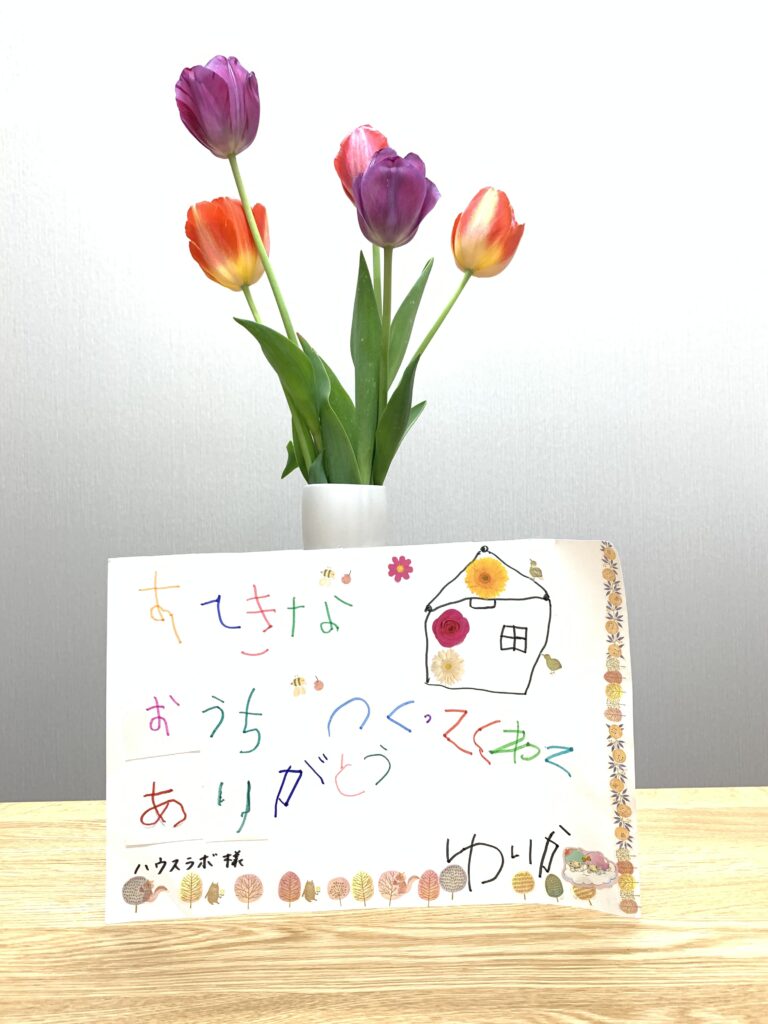 すてきな
おうち つくってくれて
ありがとう
ハウスラボ様
ゆりか